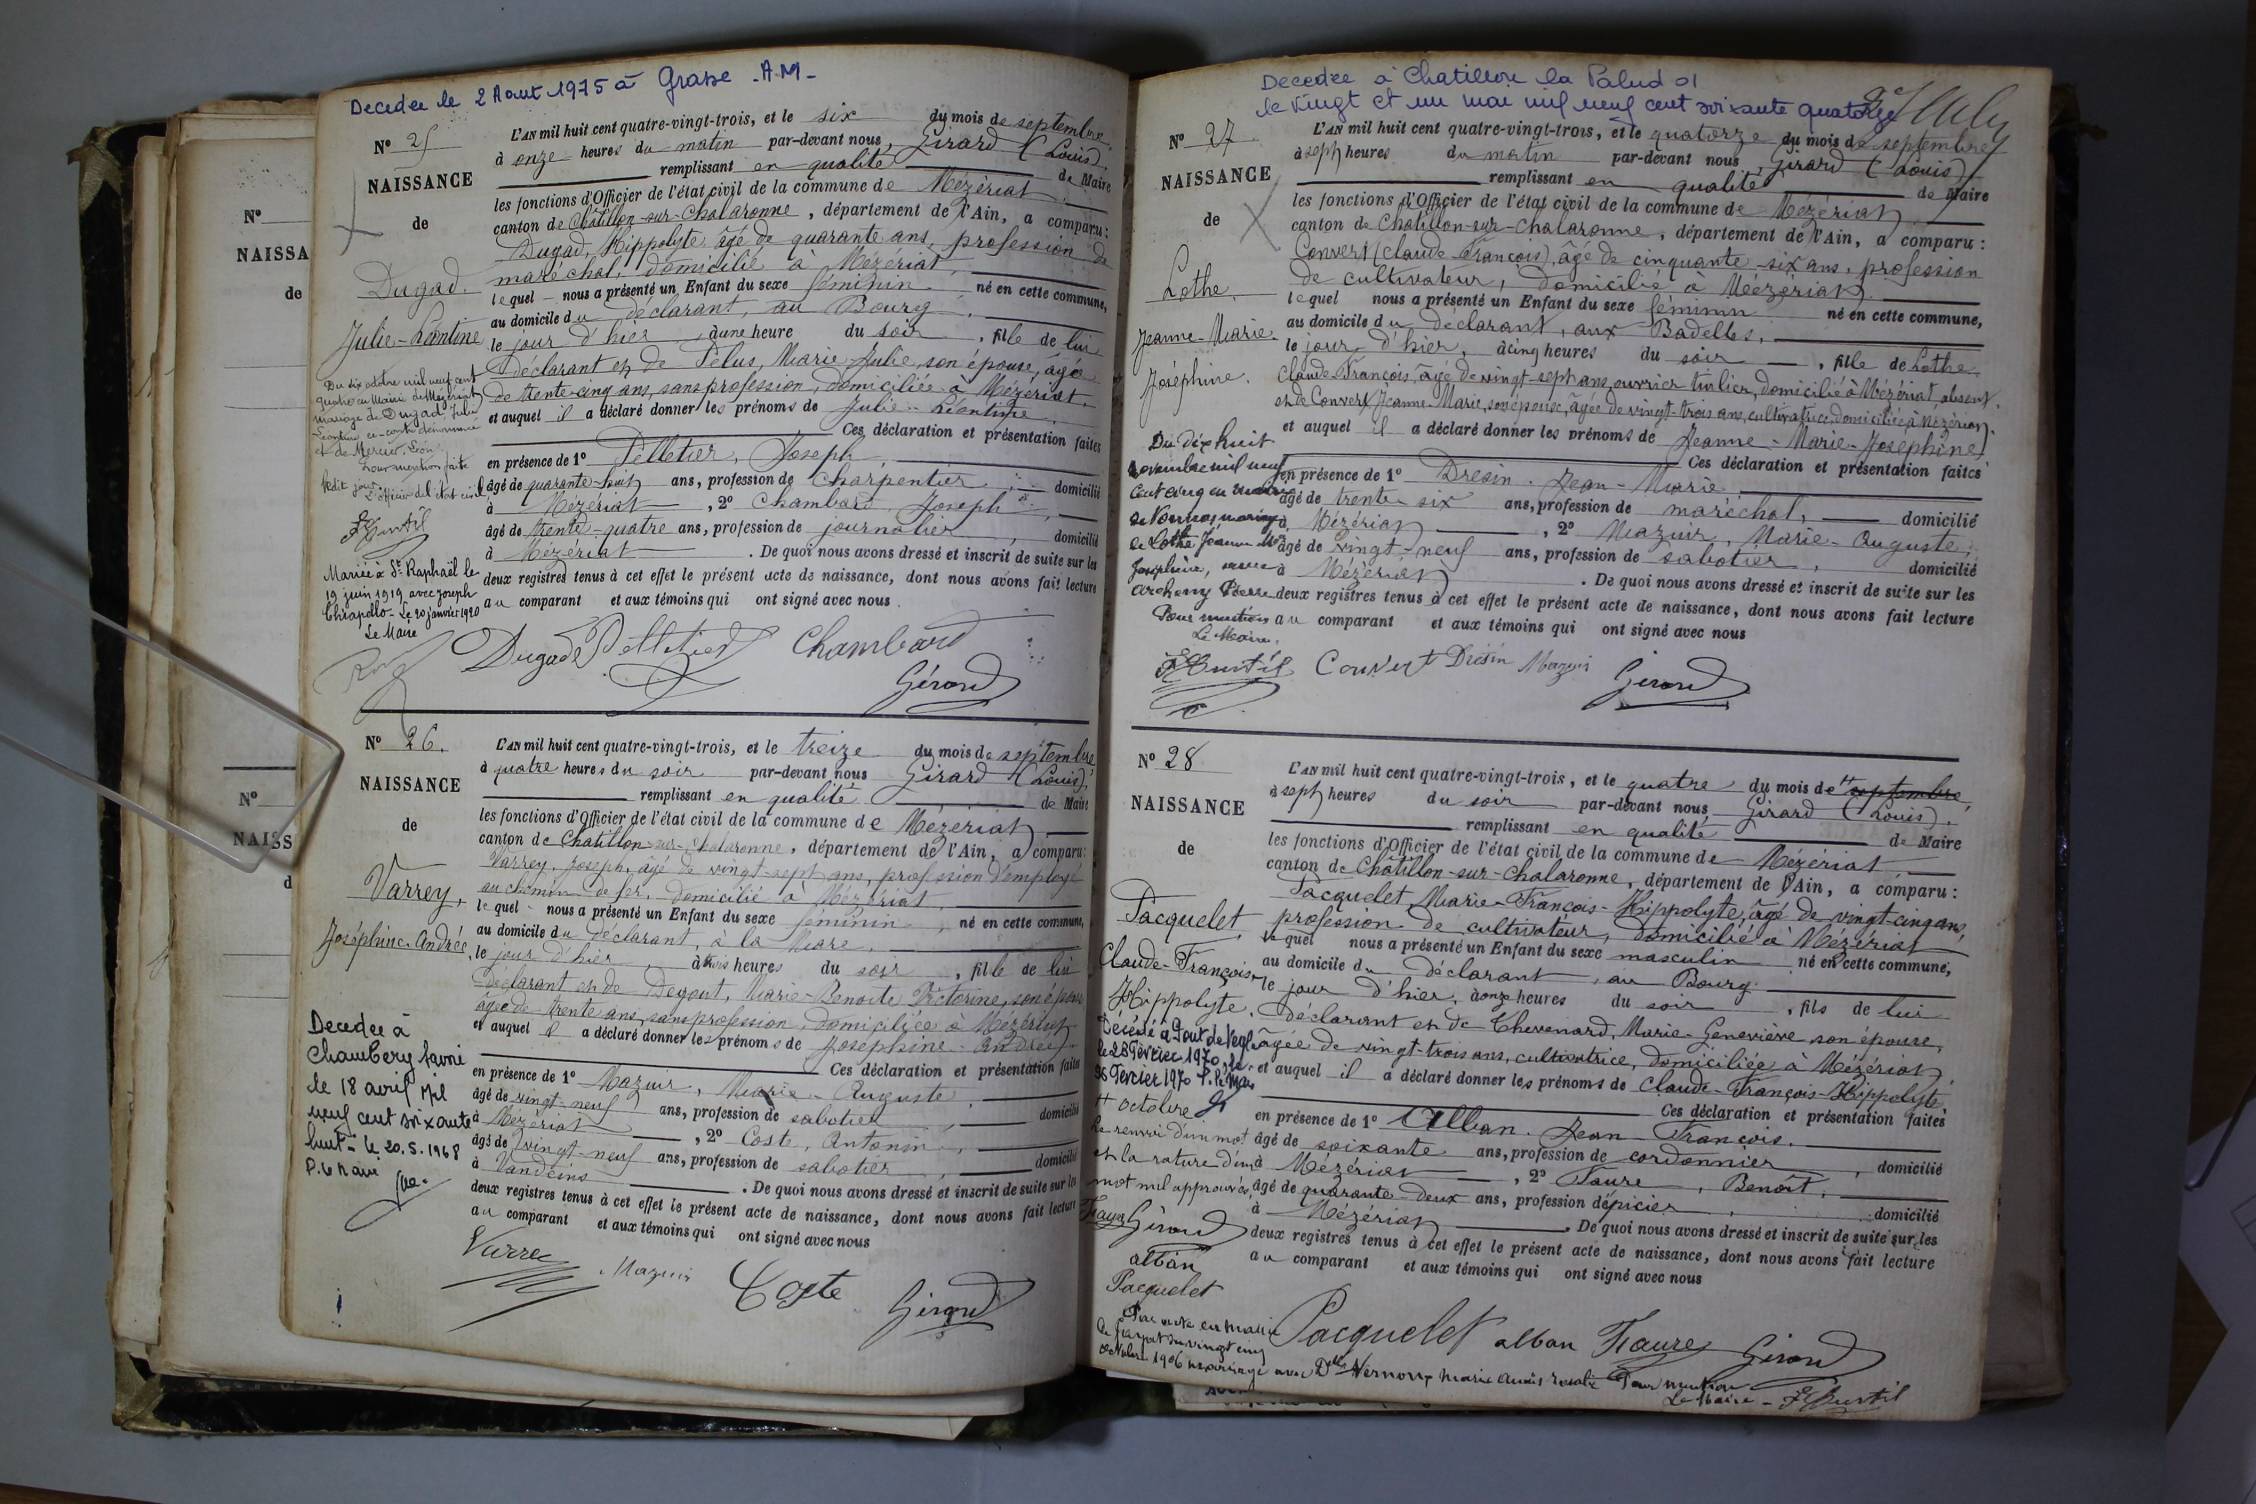 Decedee le 2 Aout 1975 à Grasse - A.M -
N° 25
NAISSANCE
de
Dugad.
Julie-Léontine
Du six octobre mil neuf cent
quatre en Mairie de Mézériat
mariage de Dugad Julie
Léontine ci-contre dénommée
et de Mercier, Léon
Pour mention faite
ledit jour.
L'officier de l'état civil
Mariée à St Raphaël le
19 juin 1919 avec Joseph
Chiapello - Le 20 janvier 1920
Le Maire
L'AN mil huit cent quatre-vingt-trois, et le six du mois de septembre,
à onze heures du matin par-devant nous, Girard (Louis),
remplissant en qualité de Maire
les fonctions d'Officier de l'état civil de la commune de Mézériat
canton de Châtillon-sur-Chalaronne, département de l'Ain, a comparu :
Dugad, Hippolyte, âgé de quarante ans, profession de
maréchal, domicilié à Mézériat,
lequel nous a présenté un Enfant du sexe féminin né en cette commune,
au domicile du déclarant, au Bourg,
le jour d'hier, à une heure du soir, fille de lui
déclarant et de Pélus, Marie-Julie, son épouse, âgée
de trente-cinq ans, sans profession, domiciliée à Mézériat,
et auquel il a déclaré donner les prénoms de Julie-Léontine
Ces déclaration et présentation faites
en présence de 1° Pelletier, Joseph
âgé de quarante-huit ans, profession de charpentier, domicilié
à Mézériat, 2° Chambard, Joseph,
âgé de trente-quatre ans, profession de journalier, domicilié
à Mézériat. De quoi nous avons dressé et inscrit de suite sur les
deux registres tenus à cet effet le présent acte de naissance, dont nous avons fait lecture
au comparant et aux témoins qui ont signé avec nous
Dugad Pelletier Chambard
Girard
N° 26.
NAISSANCE
de
Varrey,
Joséphine-Andrée,
Decedee à
Chambery Savoie
le 18 avril Mil
neuf cent soixante
huit - le 20.5.1968
P. le Maire
L'AN mil huit cent quatre-vingt-trois, et le treize du mois de septembre,
à quatre heures du soir par-devant nous Girard (Louis),
remplissant en qualité de Maire
les fonctions d'Officier de l'état civil de la commune de Mézériat,
canton de Châtillon-sur-Chalaronne, département de l'Ain, a comparu :
Varrey, Joseph, âgé de vingt-sept ans, profession d'employé
au chemin de fer, domicilié à Mézériat,
lequel nous a présenté un Enfant du sexe féminin, né en cette commune,
au domicile du déclarant, à la Mare,
le jour d'hier, à trois heures du soir, fille de lui
déclarant et de Degout, Marie-Benoîte Victorine, son épouse
âgée de trente ans, sans profession, domiciliée à Mézériat,
et auquel il a déclaré donner les prénoms de Joséphine-Andrée.
Ces déclaration et présentation faites
en présence de 1° Mazuir, Marie-Auguste,
âgé de vingt-neuf ans, profession de sabotier, domicilié
à Mézériat, 2° Coste, Antonin,
âgé de vingt-neuf ans, profession de sabotier, domicilié
à Vandeins. De quoi nous avons dressé et inscrit de suite sur les
deux registres tenus à cet effet le présent acte de naissance, dont nous avons fait lecture
au comparant et aux témoins qui ont signé avec nous
Varrey Mazuir Coste Girard
Decedee à Chatillon la Palud 01
le vingt et un mai mil neuf cent soixante quatorze
N° 27
NAISSANCE
de
Lothe,
Jeanne-Marie-
Joséphine.
Du dix huit
novembre mil neuf
cent cinq en mairie
de Vonnas mariage
de Lothe Jeanne Mie
Joséphine, avec
Archeny Pierre
Pour mention
Le Maire,
L'AN mil huit cent quatre-vingt-trois, et le quatorze du mois de septembre
à sept heures du matin par-devant nous, Girard (Louis)
remplissant en qualité de Maire
les fonctions d'Officier de l'état civil de la commune de Mézériat
canton de Châtillon-sur-Chalaronne, département de l'Ain, a comparu :
Convert (Claude-François), âgé de cinquante-six ans, profession
de cultivateur, domicilié à Mézériat,
lequel nous a présenté un Enfant du sexe féminin né en cette commune,
au domicile du déclarant, aux Badelles,
le jour d'hier, à cinq heures du soir, fille de Lothe,
Claude-François, âgé de vingt-sept ans, ouvrier tuilier, domicilié à Mézériat, absent,
et de Convert, Jeanne-Marie, son épouse, âgée de vingt-trois ans, cultivatrice, domiciliée à Mézériat,
et auquel il a déclaré donner les prénoms de Jeanne-Marie-Joséphine,
Ces déclaration et présentation faites
en présence de 1° Dresin, Jean-Marie
âgé de trente six ans, profession de maréchal, domicilié
à Mézériat, 2° Mazuir, Marie-Auguste,
âgé de vingt-neuf ans, profession de sabotier, domicilié
à Mézériat. De quoi nous avons dressé et inscrit de suite sur les
deux registres tenus à cet effet le présent acte de naissance, dont nous avons fait lecture
au comparant et aux témoins qui ont signé avec nous
Convert Dresin Mazuir Girard
N° 28
NAISSANCE
de
Pacquelet
Claude-François-
Hippolyte.
Décédé à Pont de Veyle
le 23 Février 1970, le
26 Février 1970 P. le Maire
++ octobre
Le renvoi d'un mot
et la rature d'un
mot nul approuvés,
Faure Girard
alban
Pacquelet
L'AN mil huit cent quatre-vingt-trois, et le quatre du mois de ++ septembre,
à sept heures du soir par-devant nous, Girard (Louis),
remplissant en qualité de Maire
les fonctions d'Officier de l'état civil de la commune de Mézériat
canton de Châtillon-sur-Chalaronne, département de l'Ain, a comparu :
Pacquelet, Marie-François-Hippolyte, âgé de vingt-cinq ans,
profession de cultivateur, domicilié à Mézériat
lequel nous a présenté un Enfant du sexe masculin né en cette commune,
au domicile du déclarant, au Bourg
le jour d'hier, à onze heures du soir, fils de lui
déclarant et de Thevenard, Marie-Geneviève son épouse,
âgée de vingt-trois ans, cultivatrice, domiciliée à Mézériat,
et auquel il a déclaré donner les prénoms de Claude-François-Hippolyte,
Ces déclaration et présentation faites
en présence de 1° Alban, Jean-François,
âgé de soixante ans, profession de cordonnier, domicilié
à Mézériat, 2° Faure, Benoît,
âgé de quarante-deux ans, profession d'épicier, domicilié
à Mézériat. De quoi nous avons dressé et inscrit de suite sur les
deux registres tenus à cet effet le présent acte de naissance, dont nous avons fait lecture
au comparant et aux témoins qui ont signé avec nous
Pacquelet alban Faure Girard
Par acte en mairie
du vingt cinq
octobre 1906 mariage avec Dlle Vernoux Marie Pour mention
Le Maire -
N°
NAISSA
de
N°
NAISS
d